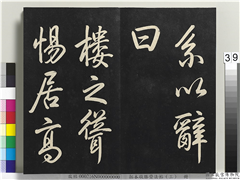 系以辭
曰
樓之聳
惕居高
39